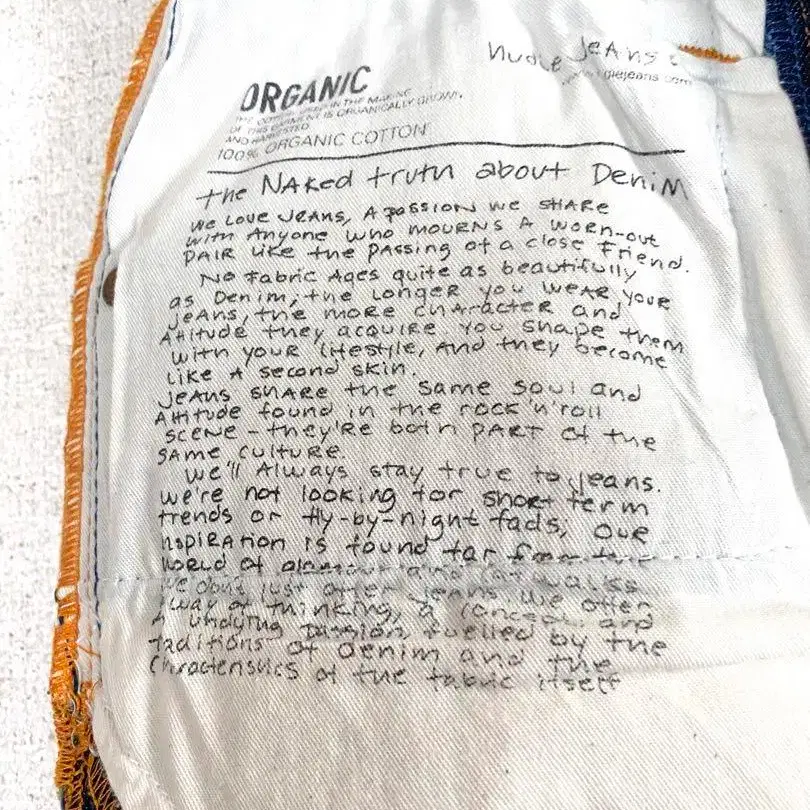 Nudie Jeans
ORGANIC
THE COTTON USED IN THE MAKING
OF THIS GARMENT IS ORGANICALLY GROWN
AND HARVESTED
100% ORGANIC COTTON
the NAKed truth about DeniM
we Love Jeans, A passion we SHARe
with Anyone who MOURNS A worn-out
PAIR Like the passing of a close Friend.
No Fabric Ages quite as beautifully
as Denim, the Longer you weAR your
jeans, the more character and
Attitude they acquire. You shape them
with your Lifestyle, And they become
Like A second skin.
Jeans share the same soul and
Attitude found in the rock'n'roll
scene - they're both PART of the
SAMe culture.
we'll Always stay true to jeans.
we're not looking for short term
trends or fly-by-night fads; OuR
nspiRAtion is found far from the
woRLD of glamour and catwalks
we dont just offer jeans we offer
A way of thinking, a concept and
A undying passion, fuelled by the
taditions of Denim and the
Characteristics of the fabric itself